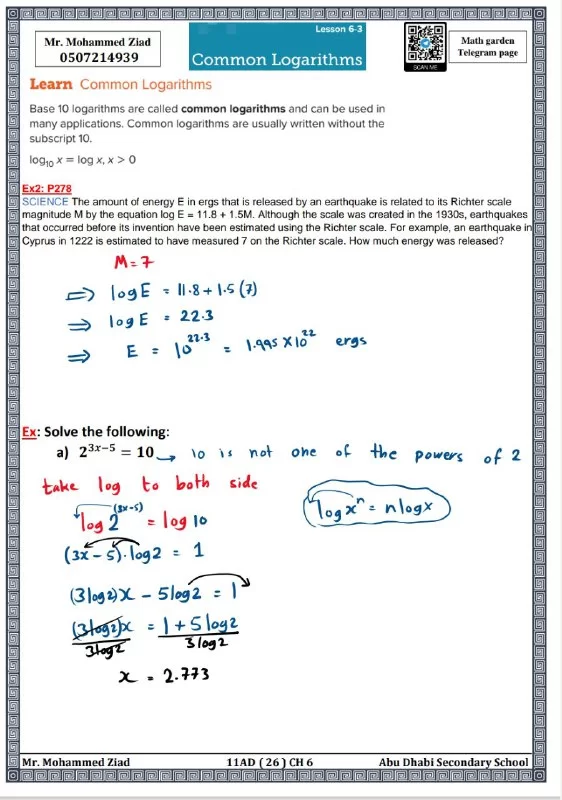 Mr. Mohammed Ziad
0507214939
Lesson 6-3
Common Logarithms
SCAN ME
Math garden
Telegram page
Learn Common Logarithms
Base 10 logarithms are called common logarithms and can be used in
many applications. Common logarithms are usually written without the
subscript 10.
log₁₀ x = log x, x > 0
Ex2: P278
SCIENCE The amount of energy E in ergs that is released by an earthquake is related to its Richter scale
magnitude M by the equation log E = 11.8 + 1.5M. Although the scale was created in the 1930s, earthquakes
that occurred before its invention have been estimated using the Richter scale. For example, an earthquake in
Cyprus in 1222 is estimated to have measured 7 on the Richter scale. How much energy was released?
M = 7
⇒ log E = 11.8 + 1.5 (7)
⇒ log E = 22.3
⇒ E = 10^22.3 = 1.995 × 10^22 ergs
Ex: Solve the following:
a) 2^(3x−5) = 10 → 10 is not one of the powers of 2
take log to both side
log 2^(3x−5) = log 10
log xⁿ = n log x
(3x − 5) · log 2 = 1
(3 log 2) x − 5 log 2 = 1
(3 log 2) x = 1 + 5 log 2
3 log 2 3 log 2
x = 2.773
Mr. Mohammed Ziad
11AD ( 26 ) CH 6
Abu Dhabi Secondary School